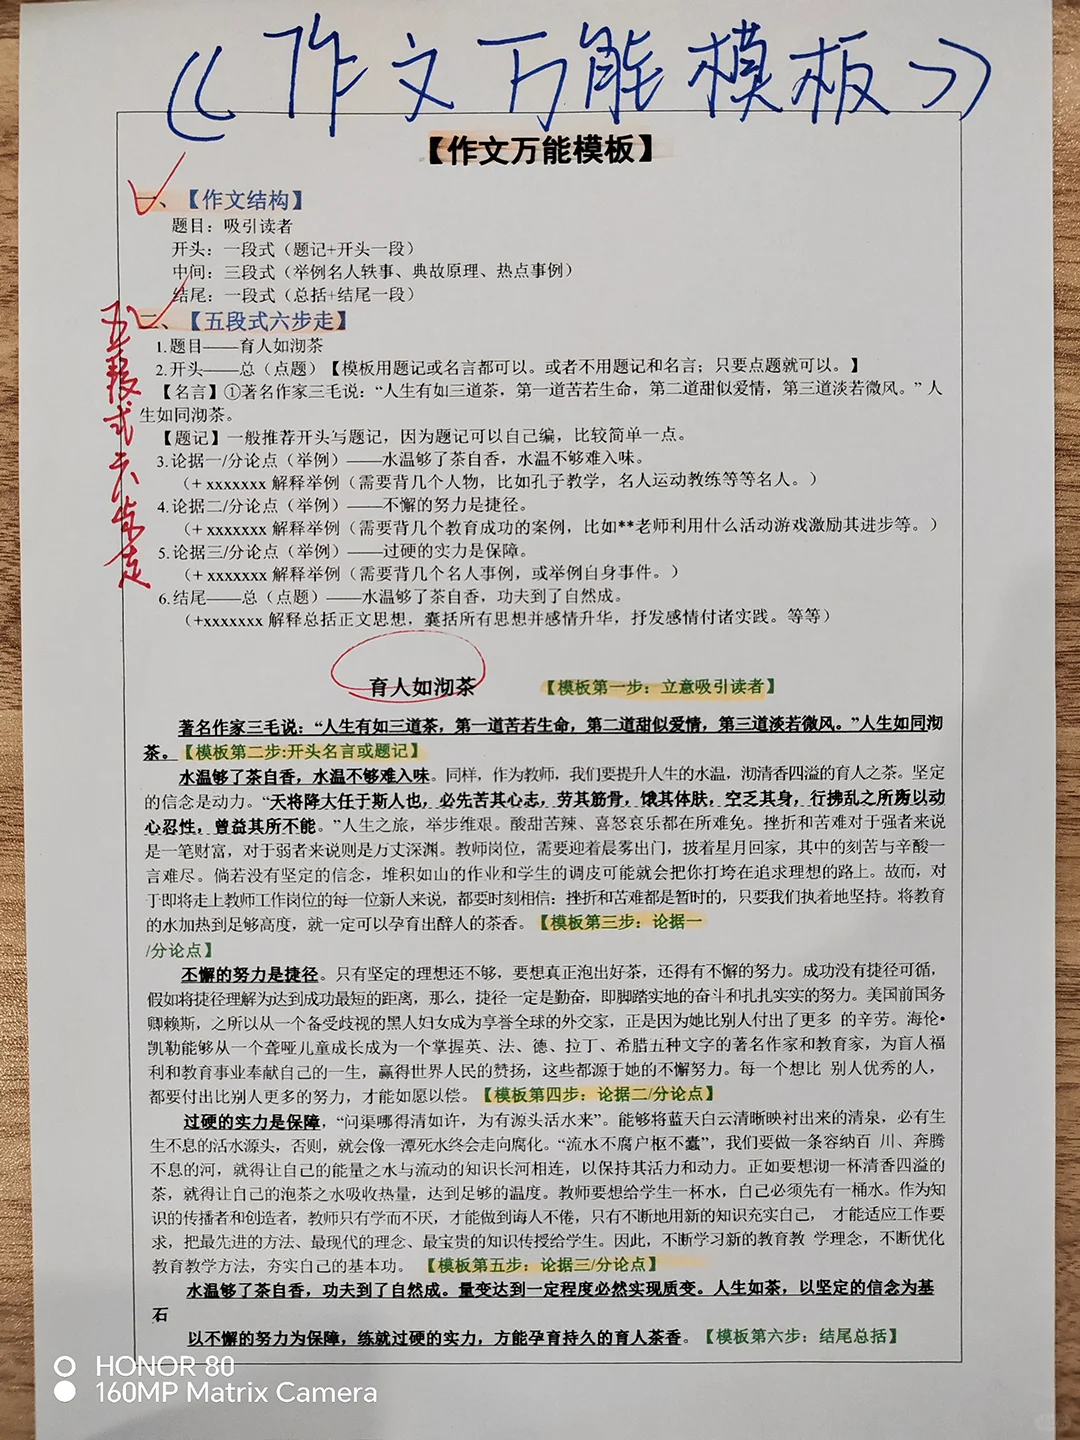 《作文万能模板》
【作文万能模板】
一、【作文结构】
题目：吸引读者
开头：一段式（题记+开头一段）
中间：三段式（举例名人轶事、典故原理、热点事例）
结尾：一段式（总括+结尾一段）
二、【五段式六步走】
五段式六步走
1.题目——育人如沏茶
2.开头——总（点题）【模板用题记或名言都可以。或者不用题记和名言；只要点题就可以。】
【名言】①著名作家三毛说：“人生有如三道茶，第一道苦若生命，第二道甜似爱情，第三道淡若微风。” 人
生如同沏茶。
【题记】一般推荐开头写题记，因为题记可以自己编，比较简单一点。
3.论据一/分论点（举例）——水温够了茶自香，水温不够难入味。
（+ xxxxxxx 解释举例（需要背几个人物，比如孔子教学，名人运动教练等等名人。）
4.论据二/分论点（举例）——不懈的努力是捷径。
（+ xxxxxxx 解释举例（需要背几个教育成功的案例，比如**老师利用什么活动游戏激励其进步等。）
5.论据三/分论点（举例）——过硬的实力是保障。
（+ xxxxxxx 解释举例（需要背几个名人事例，或举例自身事件。）
6.结尾——总（点题）——水温够了茶自香，功夫到了自然成。
（+xxxxxxx 解释总括正文思想，囊括所有思想并感情升华，抒发感情付诸实践。等等）
育人如沏茶 【模板第一步：立意吸引读者】
著名作家三毛说：“人生有如三道茶，第一道苦若生命，第二道甜似爱情，第三道淡若微风。”人生如同沏
茶。【模板第二步:开头名言或题记】
水温够了茶自香，水温不够难入味。同样，作为教师，我们要提升人生的水温，沏清香四溢的育人之茶。坚定
的信念是动力。“天将降大任于斯人也，必先苦其心志，劳其筋骨，饿其体肤，空乏其身，行拂乱之所为以动
心忍性，曾益其所不能。”人生之旅，举步维艰。酸甜苦辣、喜怒哀乐都在所难免。挫折和苦难对于强者来说
是一笔财富，对于弱者来说则是万丈深渊。教师岗位，需要迎着晨雾出门，披着星月回家，其中的刻苦与辛酸一
言难尽。倘若没有坚定的信念，堆积如山的作业和学生的调皮可能就会把你打垮在追求理想的路上。故而，对
于即将走上教师工作岗位的每一位新人来说，都要时刻相信：挫折和苦难都是暂时的，只要我们执着地坚持。将教育
的水加热到足够高度，就一定可以孕育出醉人的茶香。【模板第三步：论据一
/分论点】
不懈的努力是捷径。只有坚定的理想还不够，要想真正泡出好茶，还得有不懈的努力。成功没有捷径可循，
假如将捷径理解为达到成功最短的距离，那么，捷径一定是勤奋，即脚踏实地的奋斗和扎扎实实的努力。美国前国务
卿赖斯，之所以从一个备受歧视的黑人妇女成为享誉全球的外交家，正是因为她比别人付出了更多 的辛劳。海伦•
凯勒能够从一个聋哑儿童成长成为一个掌握英、法、德、拉丁、希腊五种文字的著名作家和教育家，为盲人福
利和教育事业奉献自己的一生，赢得世界人民的赞扬，这些都源于她的不懈努力。每一个想比 别人优秀的人，
都要付出比别人更多的努力，才能如愿以偿。【模板第四步：论据二/分论点】
过硬的实力是保障，“问渠哪得清如许，为有源头活水来”。能够将蓝天白云清晰映衬出来的清泉，必有生
生不息的活水源头，否则，就会像一潭死水终会走向腐化。“流水不腐户枢不蠹”，我们要做一条容纳百 川、奔腾
不息的河，就得让自己的能量之水与流动的知识长河相连，以保持其活力和动力。正如要想沏一杯清香四溢的
茶，就得让自己的泡茶之水吸收热量，达到足够的温度。教师要想给学生一杯水，自己必须先有一桶水。作为知
识的传播者和创造者，教师只有学而不厌，才能做到诲人不倦，只有不断地用新的知识充实自己， 才能适应工作要
求，把最先进的方法、最现代的理念、最宝贵的知识传授给学生。因此，不断学习新的教育教 学理念，不断优化
教育教学方法，夯实自己的基本功。 【模板第五步：论据三/分论点】
水温够了茶自香，功夫到了自然成。量变达到一定程度必然实现质变。人生如茶，以坚定的信念为基
石
以不懈的努力为保障，练就过硬的实力，方能孕育持久的育人茶香。【模板第六步：结尾总括】
HONOR 80
160MP Matrix Camera